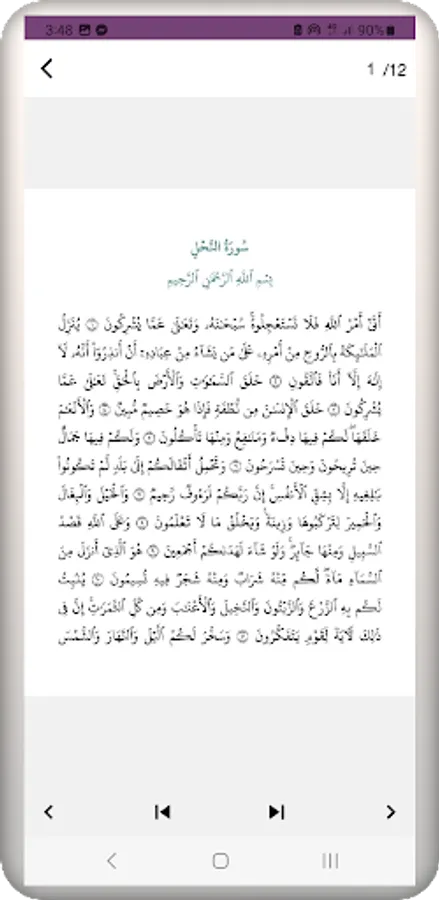 3:48 90%
1 /12
سُورَةُ النَّحۡلِ
بِسۡمِ ٱللَّهِ ٱلرَّحۡمَٰنِ ٱلرَّحِيمِ
أَتَىٰٓ أَمۡرُ ٱللَّهِ فَلَا تَسۡتَعۡجِلُوهُۚ سُبۡحَٰنَهُۥ وَتَعَٰلَىٰ عَمَّا يُشۡرِكُونَ ١ يُنَزِّلُ
ٱلۡمَلَٰٓئِكَةَ بِٱلرُّوحِ مِنۡ أَمۡرِهِۦ عَلَىٰ مَن يَشَآءُ مِنۡ عِبَادِهِۦٓ أَنۡ أَنذِرُوٓاْ أَنَّهُۥ لَآ
إِلَٰهَ إِلَّآ أَنَا۠ فَٱتَّقُونِ ٢ خَلَقَ ٱلسَّمَٰوَٰتِ وَٱلۡأَرۡضَ بِٱلۡحَقِّۚ تَعَٰلَىٰ عَمَّا
يُشۡرِكُونَ ٣ خَلَقَ ٱلۡإِنسَٰنَ مِن نُّطۡفَةٖ فَإِذَا هُوَ خَصِيمٞ مُّبِينٞ ٤ وَٱلۡأَنۡعَٰمَ
خَلَقَهَاۖ لَكُمۡ فِيهَا دِفۡءٞ وَمَنَٰفِعُ وَمِنۡهَا تَأۡكُلُونَ ٥ وَلَكُمۡ فِيهَا جَمَالٌ
حِينَ تُرِيحُونَ وَحِينَ تَسۡرَحُونَ ٦ وَتَحۡمِلُ أَثۡقَالَكُمۡ إِلَىٰ بَلَدٖ لَّمۡ تَكُونُواْ
بَٰلِغِيهِ إِلَّا بِشِقِّ ٱلۡأَنفُسِۚ إِنَّ رَبَّكُمۡ لَرَءُوفٞ رَّحِيمٞ ٧ وَٱلۡخَيۡلَ وَٱلۡبِغَالَ
وَٱلۡحَمِيرَ لِتَرۡكَبُوهَا وَزِينَةٗۚ وَيَخۡلُقُ مَا لَا تَعۡلَمُونَ ٨ وَعَلَى ٱللَّهِ قَصۡدُ
ٱلسَّبِيلِ وَمِنۡهَا جَآئِرٞۚ وَلَوۡ شَآءَ لَهَدَىٰكُمۡ أَجۡمَعِينَ ٩ هُوَ ٱلَّذِيٓ أَنزَلَ مِنَ
ٱلسَّمَآءِ مَآءٗۖ لَّكُم مِّنۡهُ شَرَابٞ وَمِنۡهُ شَجَرٞ فِيهِ تُسِيمُونَ ١٠ يُنۢبِتُ
لَكُم بِهِ ٱلزَّرۡعَ وَٱلزَّيۡتُونَ وَٱلنَّخِيلَ وَٱلۡأَعۡنَٰبَ وَمِن كُلِّ ٱلثَّمَرَٰتِۚ إِنَّ فِي
ذَٰلِكَ لَأٓيَةٗ لِّقَوۡمٖ يَتَفَكَّرُونَ ١١ وَسَخَّرَ لَكُمُ ٱلَّيۡلَ وَٱلنَّهَارَ وَٱلشَّمۡسَ